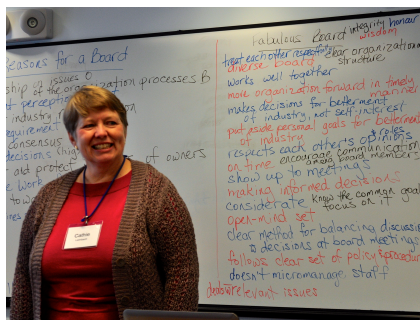 Reasons for a Board
ship of issues O
of the organization processes B
perception
industry
consensus
decisions
old protect of owners
Work
Cathie
Fabulous Board integrity honour
wisdom
treat each other respectfully clear organizational
structure
diverse board
works well together
move organization forward in timely
manner
makes decisions for betterment
of industry, not self-interest
put aside personal goals for betterment
of industry
& roles
respect each other's opinions
on time encourage communication
among board members
show up to meetings
making informed decisions
considerate know the common goal
focus on it
open-mind set
clear method for balancing discussion
& decisions at board meetings
follows clear set of policy & procedure
doesn't micromanage staff
relevant issues